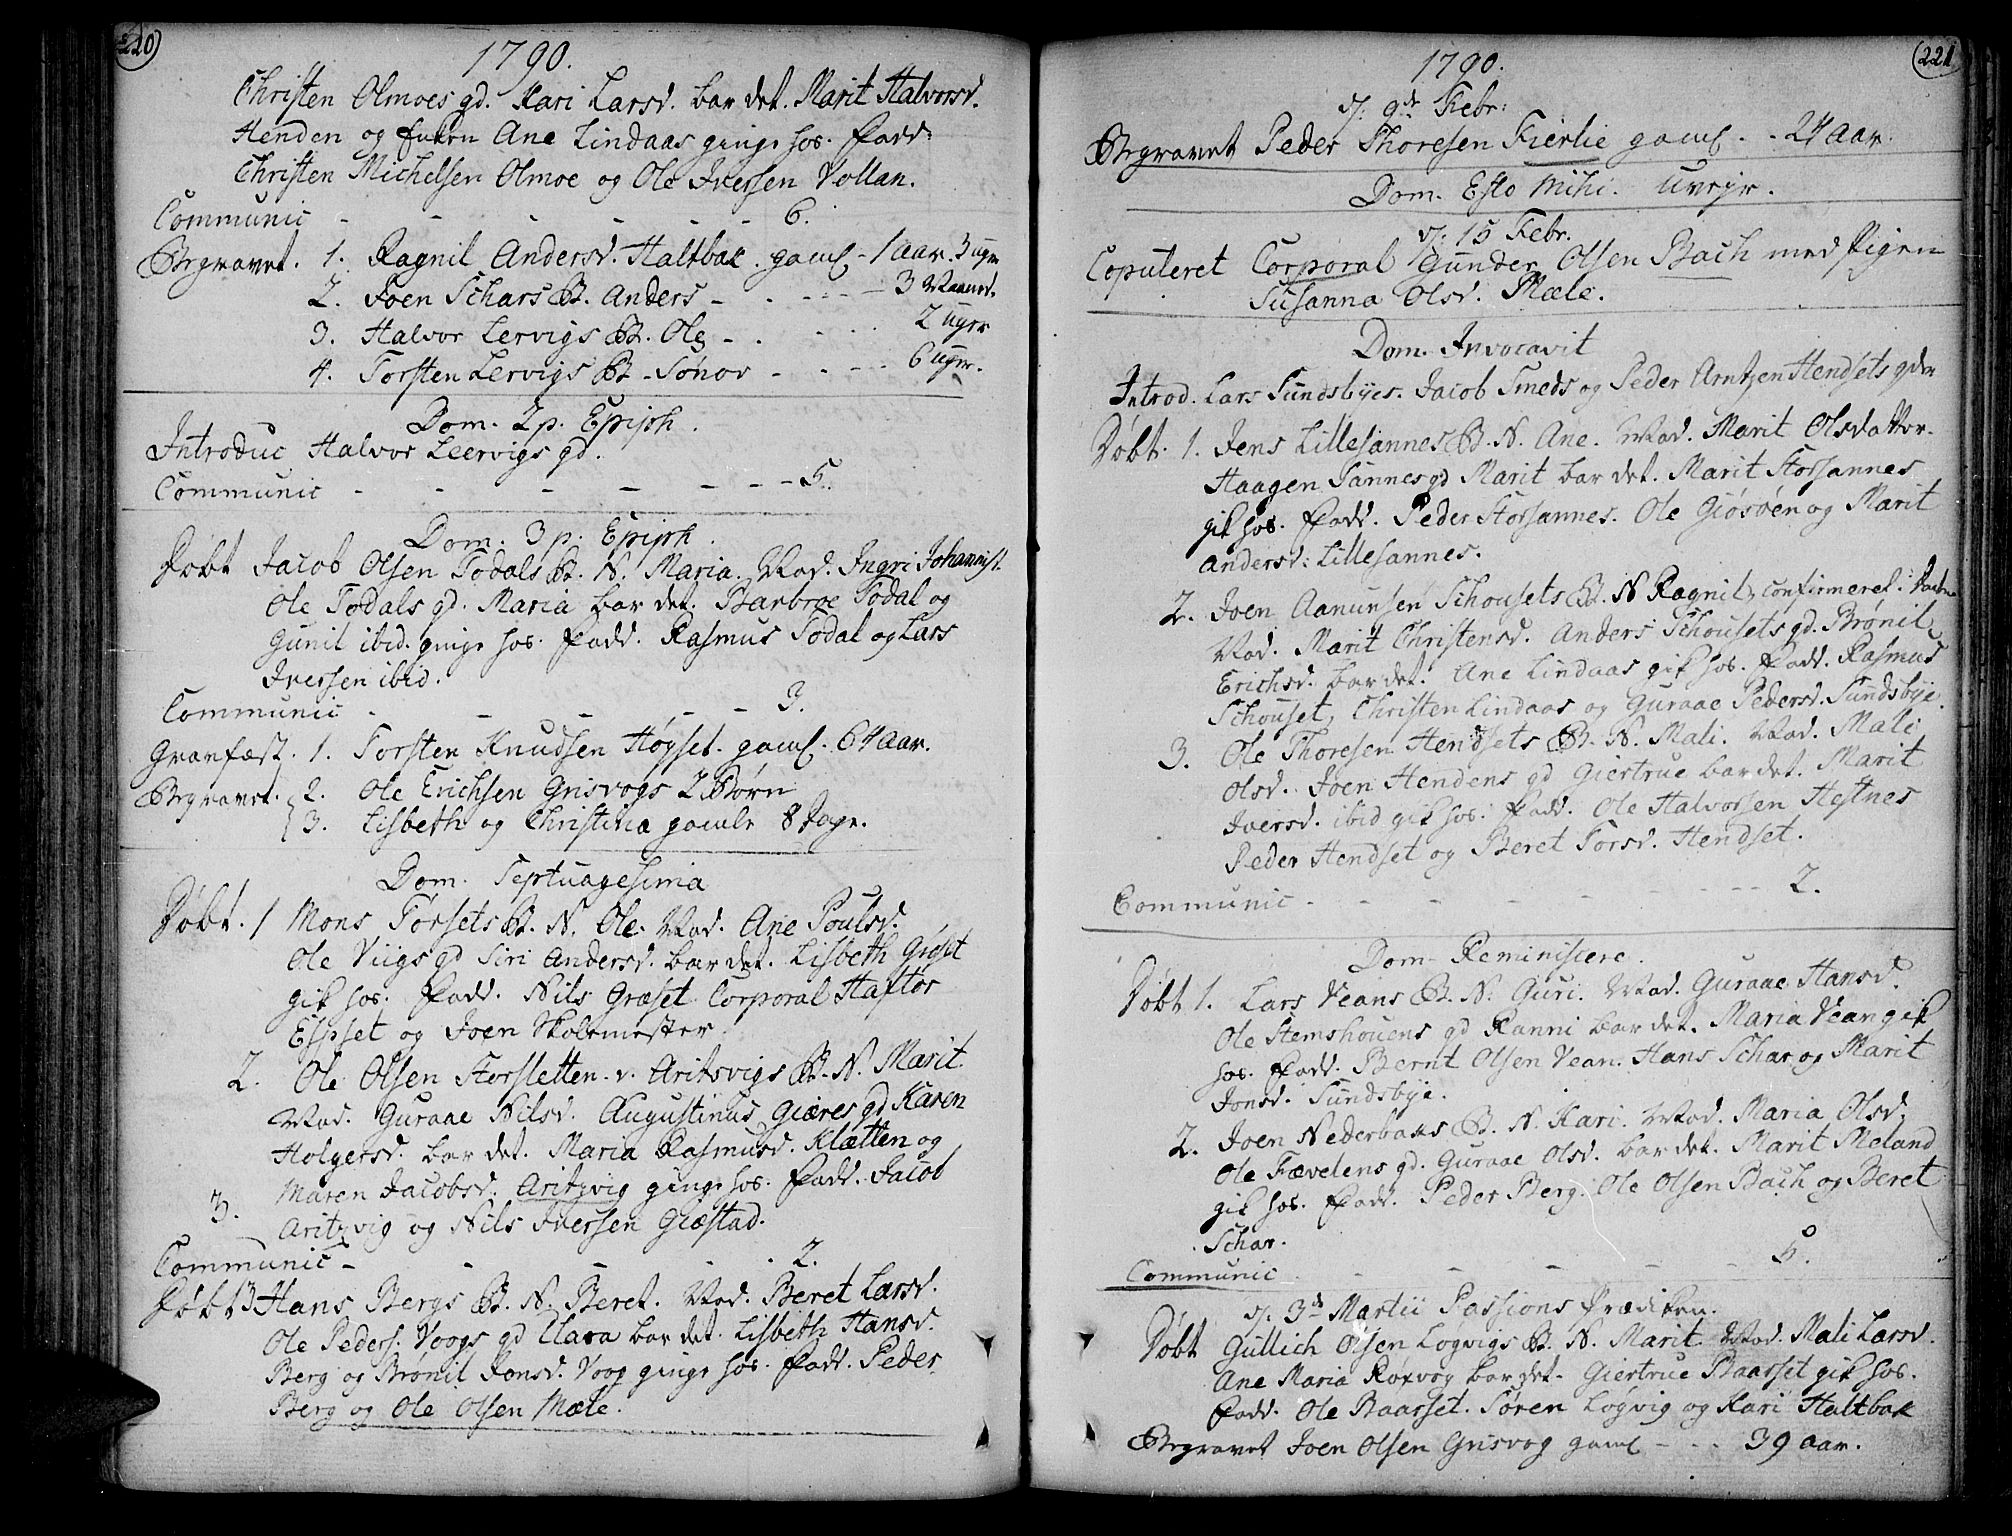 220)
1790.
Christen Olmoes gd. Kari Larsd. bar det. Marit Halvorsd.
Henden og Ane Lindaas ginge hos. Fadd:
Christen Michelsen Olmoe og Ole Iversen Vollan.
Communic - - - - - - 6.
Begravet. 1. Ragnil Andersd. Haltbak. gaml - 1 Aar. 3 uger
2. Joen Schars B. Anders - - - - 3 Maaned.
3. Halvor Lervigs B. Ole - - - - 2 uger
4. Torsten Lervigs B - Sønov - - - - 6 uger.
Dom. 2 p. Epiph.
Introduc Halvor Leervigs gd.
Communic - - - - - - 5.
Dom. 3 p. Epiph.
Døbt Jacob Olsen Todals B. N. Maria. Mod. Ingri Johannisd.
Ole Todals gd. Maria bar det. Barbroe Todal og
Gunil ibid. ginge hos. Fadd. Rasmus Todal og Lars
Iversen ibid.
Communic - - - - - 3.
Gravfæst. 1. Torsten Knudsen Høgset. gaml. 64 Aar.
Begravet. 2. Ole Erichsen Grisvogs 2 Børn
3. Lisbeth og Christina gamle 8 Dage.
Dom. Septuagesima
Døbt. 1 Mons Torsets B. N. Ole. Mod. Ane Poulsd.
Ole Viigs gd Siri Andersd. bar det. Lisbeth Giøset
gik hos. Fadd. Nils Græset Corporal Haftor
Espset og Joen Skolemester.
2. Ole Olsen Storsletten v. Aritsvigs B. N. Marit.
Mod. Guraae Nilsd. Augustinus Giæres gd Karen
Holgersd. bar det. Maria Rasmusd. Klætten og
Maren Jacobsd. Aritzvig ginge hos. Fadd. Jacob
3. Aritzvig og Nils Iversen Giæstad.
Communic - - - - 2.
Døbt 3 Hans Bergs B. N. Beret. Mod. Beret Larsd.
Ole Peders: Voogs gd Clara bar det. Lisbeth Hansd.
Berg og Brønil Jonsd. Voog ginge hos. Fadd. Peder
Berg og Ole Olsen Mæle.
(221)
1790.
d: 9de Febr:
Begravet Peder Thoresen Fierlie gaml - - 24 Aar.
Dom. Esto Mihi. Uvejr.
d: 15 Febr.
Copuleret Corporal Gunder Olsen Bach med Pigen
Susanna Olsd. Mæle.
Dom. Invocavit
Introd. Lars Sundsbyes. Jacob Smeds og Peder Arntzen Hendsets gder
Døbt. 1. Jens Lillesannes B. N. Ane. Mod. Marit Olsdatter.
Haagen Sannes gd Marit bar det. Marit Storsannes
gik hos. Fadd. Peder Storsannes. Ole Giøsøen og Marit
Andersd: Lillesannes.
2. Joen Aanunsen Schousets B. N Ragnil, confirmeret.
Mod. Marit Christensd. Anders Schousets gd. Brønil
Erichsd. bar det. Ane Lindaas gik hos. Fadd. Rasmus
Schouset, Christen Lindaas og Guraae Pedersd. Sundsbye.
3. Ole Thoresen Hendsets B. N. Mali. Mod. Mali
Olsd. Joen Hendens gd Giertrue bar det. Marit
Iversd. ibid gik hos. Fadd. Ole Halvorsen Hestnes
Peder Hendset og Beret Torsd. Hendset.
Communic - - - - - 2.
Dom. Reminiscere.
Døbt 1. Lars Veans B. N. Guri. Mod. Guraae Hansd.
Ole Stemshouens gd Ranni bar det. Maria Vean gik
hos. Fadd. Bernt Olsen Vean. Hans Schar og Marit
Jonsd. Sundsbye.
2. Joen Nederbaks B. N. Kari. Mod. Maria Olsd.
Ole Fævelens gd. Guraae Olsd. bar det. Marit Meland
gik hos. Fadd. Peder Berg. Ole Olsen Bach og Beret
Schar.
Communic - - - - - 5.
d: 3de Martii Passions Prædiken.
Døbt Gullich Olsen Løgvigs B. N. Marit. Mod. Mali Larsd.
Ane Maria Røxvog bar det. Giertrue Baarset gik hos.
Fadd. Ole Baarset. Søren Løgvig og Kari Haltbak
Begravet Joen Olsen Grisvog gaml - - - 39 Aar.